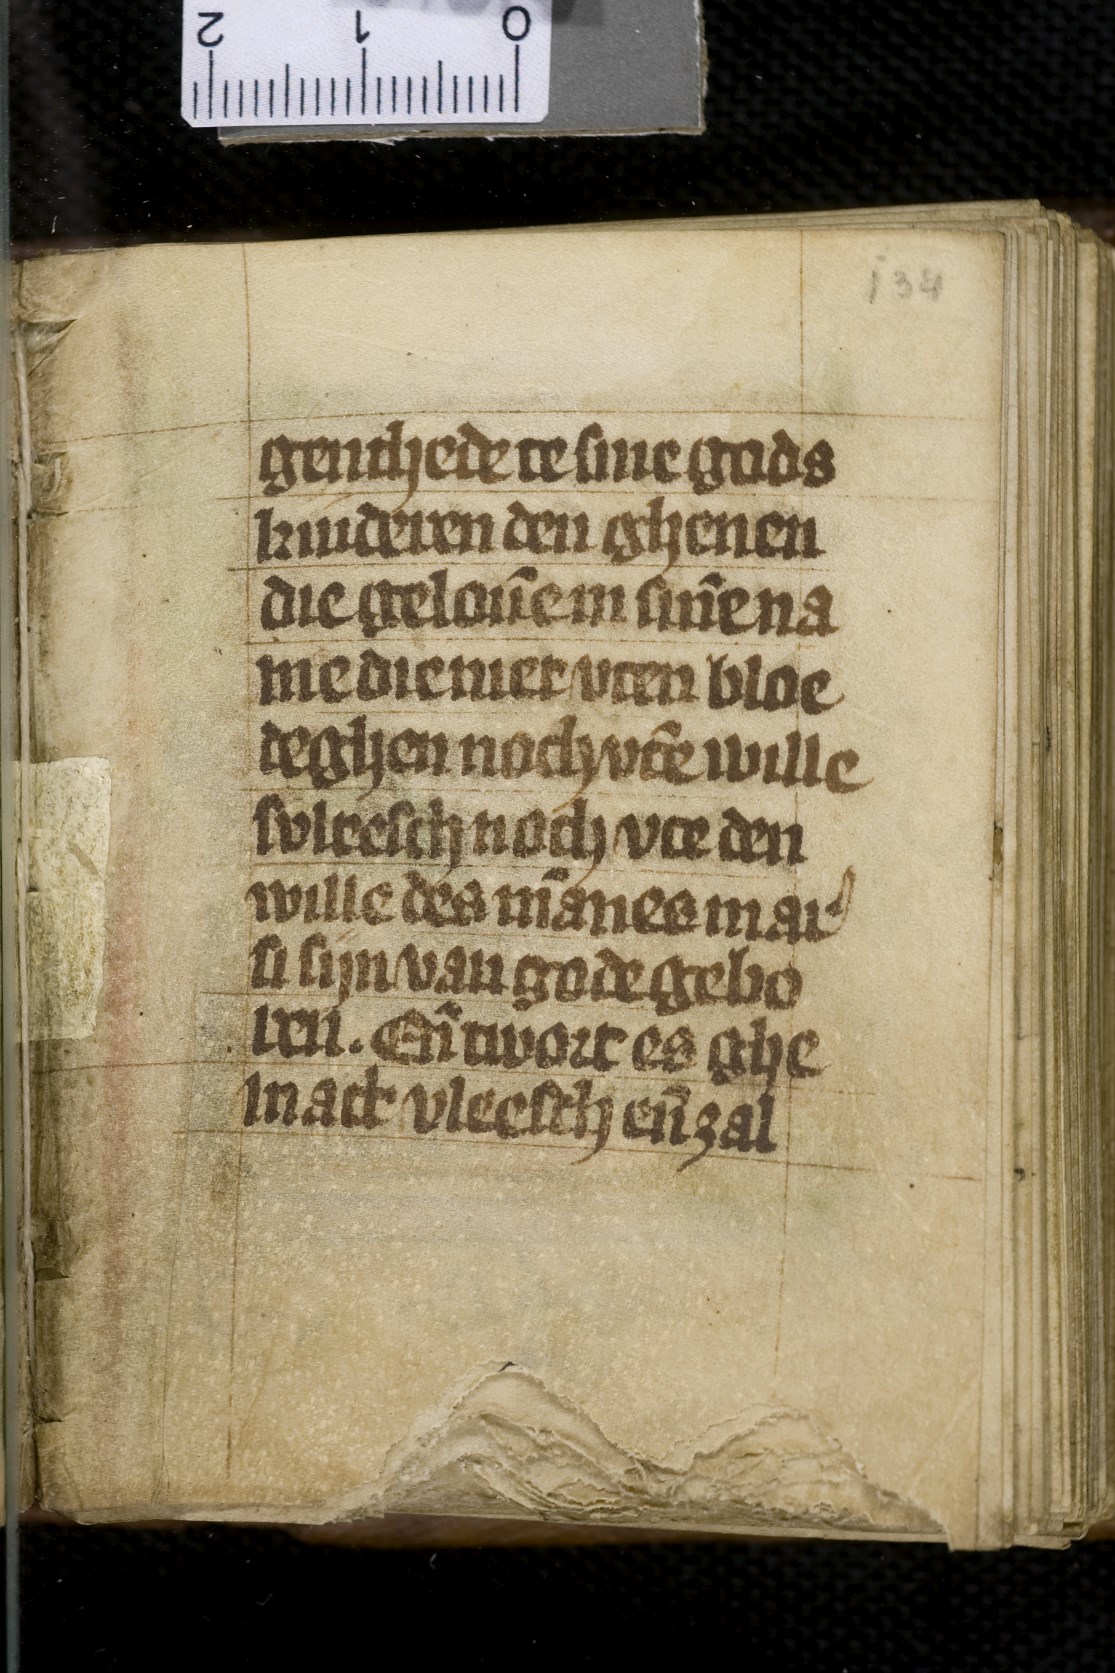 134
genthede te sine gods
kinderen den ghenen
die gelouē e in sinē e na
me die niet vten bloe
deghen noch vtē e wille
svleesch noch vte den
wille des m̄anes mar
si sijn van gode gebo
ren. En̄ twort es ghe
mact vleesch en̄ zal